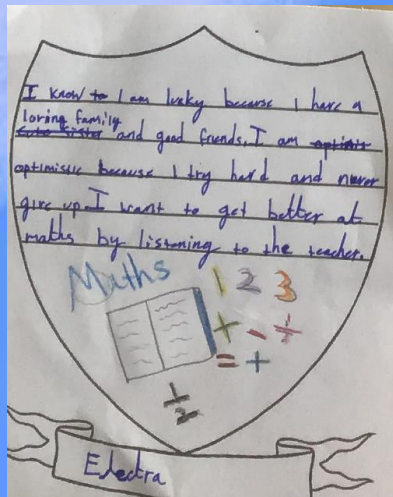 I know to I am lucky because I have a
loving family
cute sister and good friends. I am optimis
optimistic because I try hard and never
give up. I want to get better at
maths by listening to the teacher.
Maths 1 2 3
+ - ÷
= +
1/2
Electra